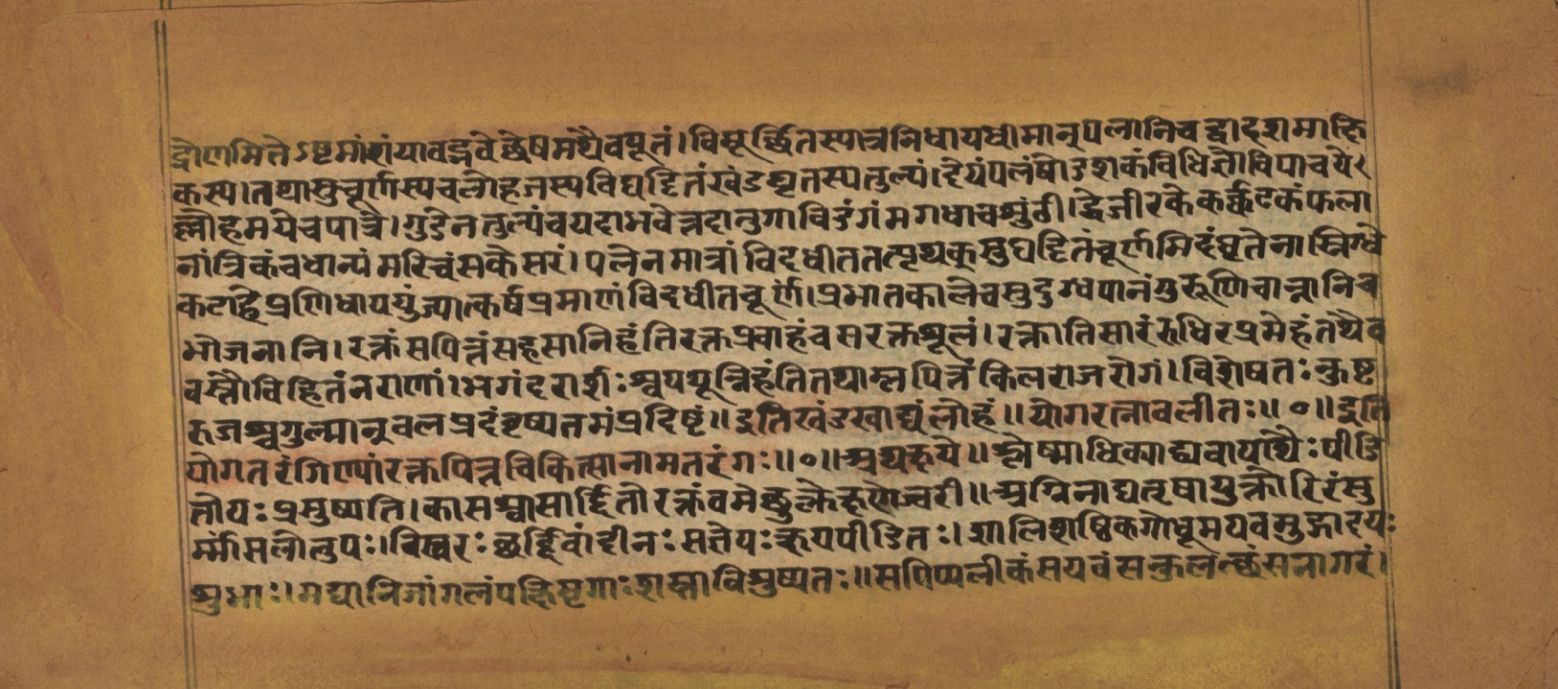 द्रोणमितेऽष्टमांशंयावद्भवेछेषमथैवपूतं।विमूर्छितस्यात्रनिधायधीमान्पलानिचद्वादशमाक्षि
कस्य।तथासुचूर्णस्यचलोहजस्यविघट्टितंखंडघृतस्यतुल्यं।देयंपलंषोडशकंविधिज्ञोविपाचये
ल्लोहमयेचपात्रे।गुडेनतुल्यंचयदाभवेत्तदातुगाविडंगंमगधाचशुंठी।द्वेजीरकेकर्कटकंफला
नांत्रिकंचधान्यंमरिचंसकेसरं।पलेनमात्रांविदधीततत्पृथक्सुघट्टितंचूर्णमिदंघृतेनास्निग्धे
कटाहेप्रणिधाययुंज्यात्कर्षप्रमाणंविदधीतचूर्णं।प्रभातकालेचसुदुग्धपानंगुरूणिचान्नानिच
भोजनानि।रक्तंसपित्तंसहसानिहंतिरक्तप्रवाहंचसरक्तशूलं।रक्तातिसारंरुधिरप्रमेहंतथैव
वस्तौविहितंनराणां।भगंदरार्शःश्वयथून्निहंतितथाम्लपित्तंकिलराजरोगं।विशेषतःकुष्ट
रुजश्चगुल्मान्वलप्रदंवृष्यतमंप्रदिष्टं॥इतिखंडखाद्यंलोहं॥योगरत्नावलीतः॥०॥इति
योगतरंगिण्यांरक्तपित्तचिकित्सानामतरंगः॥०॥अथक्षये॥श्लेष्माधिक्याद्यवायाद्यैःपीडि
तोयःप्रसुष्यति।कासश्वासार्द्दितोरक्तंवमेछुक्लेक्षणोज्वरी॥अग्निनाद्यतृषायुक्तोरिरंसु
र्म्मांसलोलुपः।विस्वरःछर्द्दिवांदीनःसज्ञेयःक्षयपीडितः।शालिशष्ठिकगोधूमयवमुद्गादयः
शुभाः।मद्यानिजांगलंपक्षिमृगाःशस्ताविशुष्यतः॥सपिप्पलीकंसयवंसकुलत्छंसनागरं।